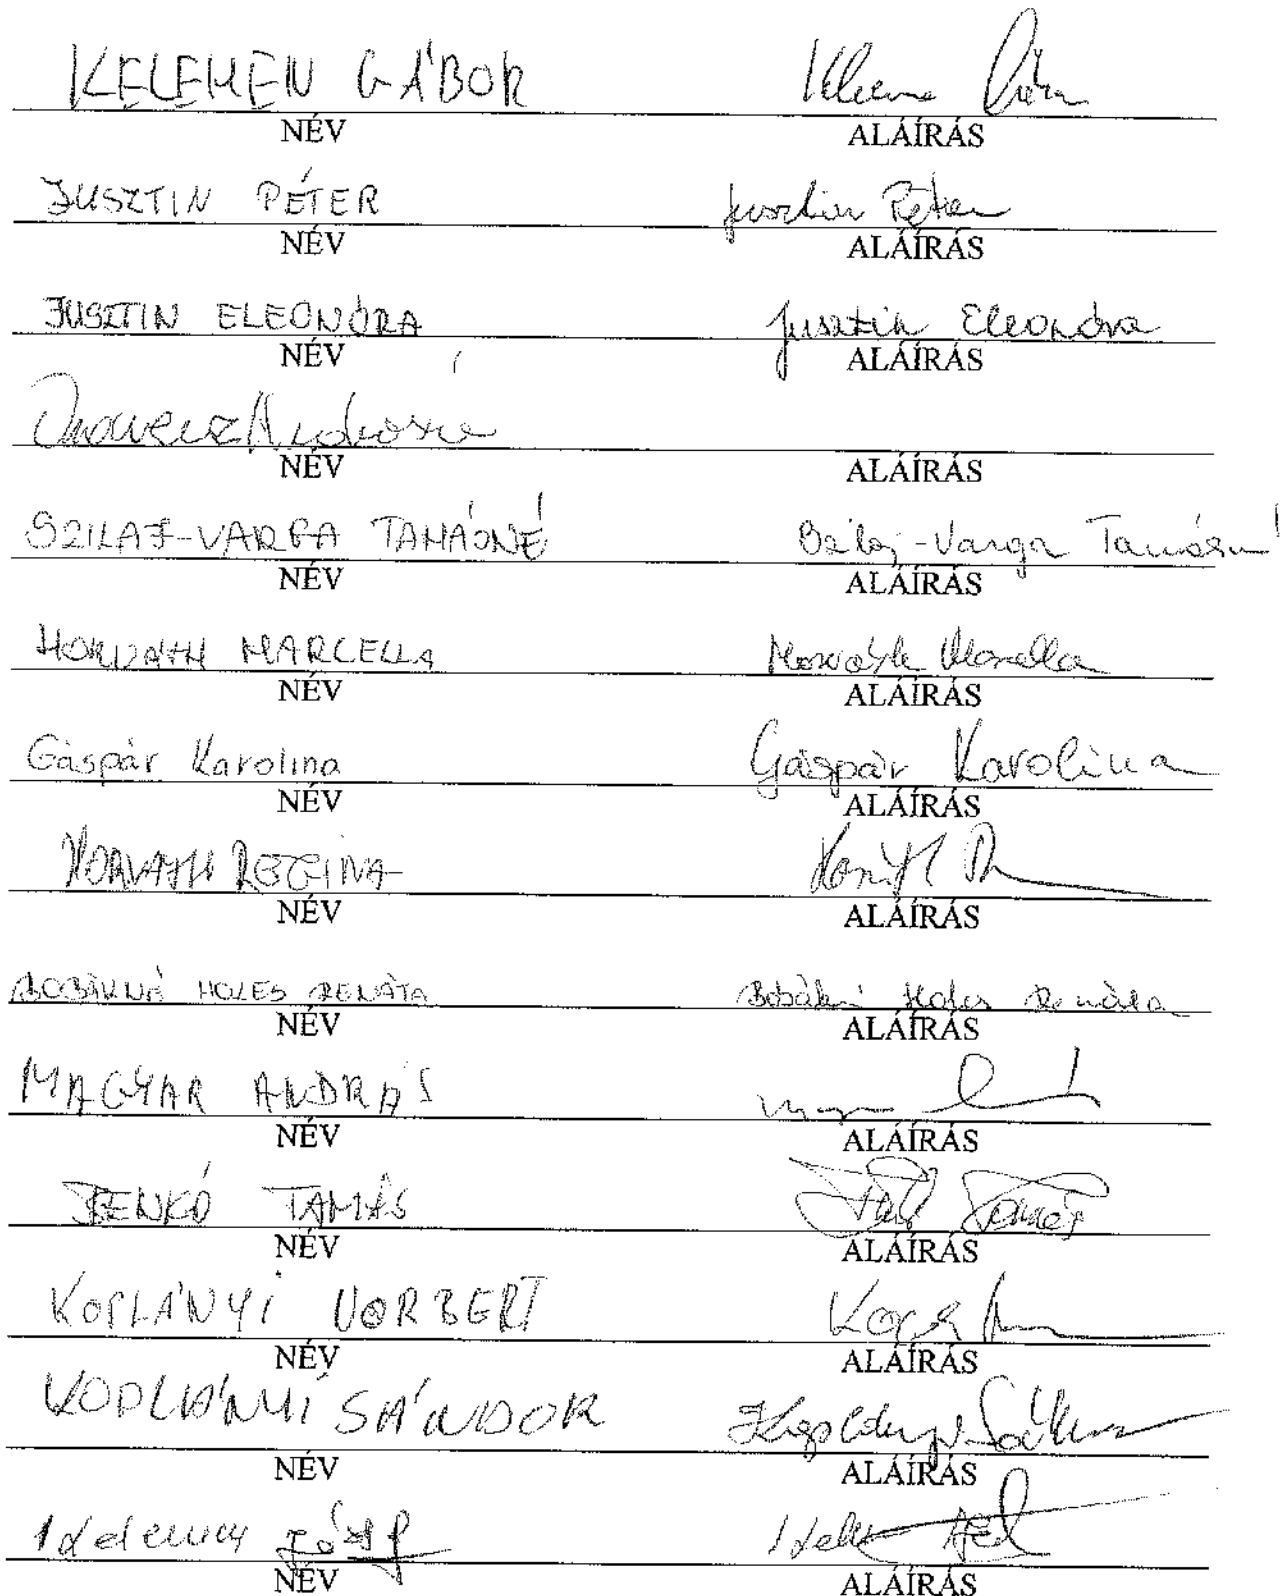 KELEMEN GÁBOR
NÉV ALÁÍRÁS
JUSZTIN PÉTER Jusztin Péter
NÉV ALÁÍRÁS
JUSZTIN ELEONÓRA Jusztin Eleonóra
NÉV ALÁÍRÁS
NÉV ALÁÍRÁS
SZILAJ-VARGA TAMÁSNÉ Szilaj-Varga Tamásné
NÉV ALÁÍRÁS
HORVÁTH MARCELLA Horváth Marcella
NÉV ALÁÍRÁS
Gáspár Karolina Gáspár Karolina
NÉV ALÁÍRÁS
HORVÁTH REGINA
NÉV ALÁÍRÁS
BOBÁKNÉ HOLES RENÁTA Bobákné Holes Renáta
NÉV ALÁÍRÁS
MAGYAR ANDRÁS
NÉV ALÁÍRÁS
BENKÓ TAMÁS Tamás
NÉV ALÁÍRÁS
KOPLÁNYI NORBERT
NÉV ALÁÍRÁS
KOPLÁNYI SÁNDOR Koplányi Sándor
NÉV ALÁÍRÁS
József
NÉV ALÁÍRÁS